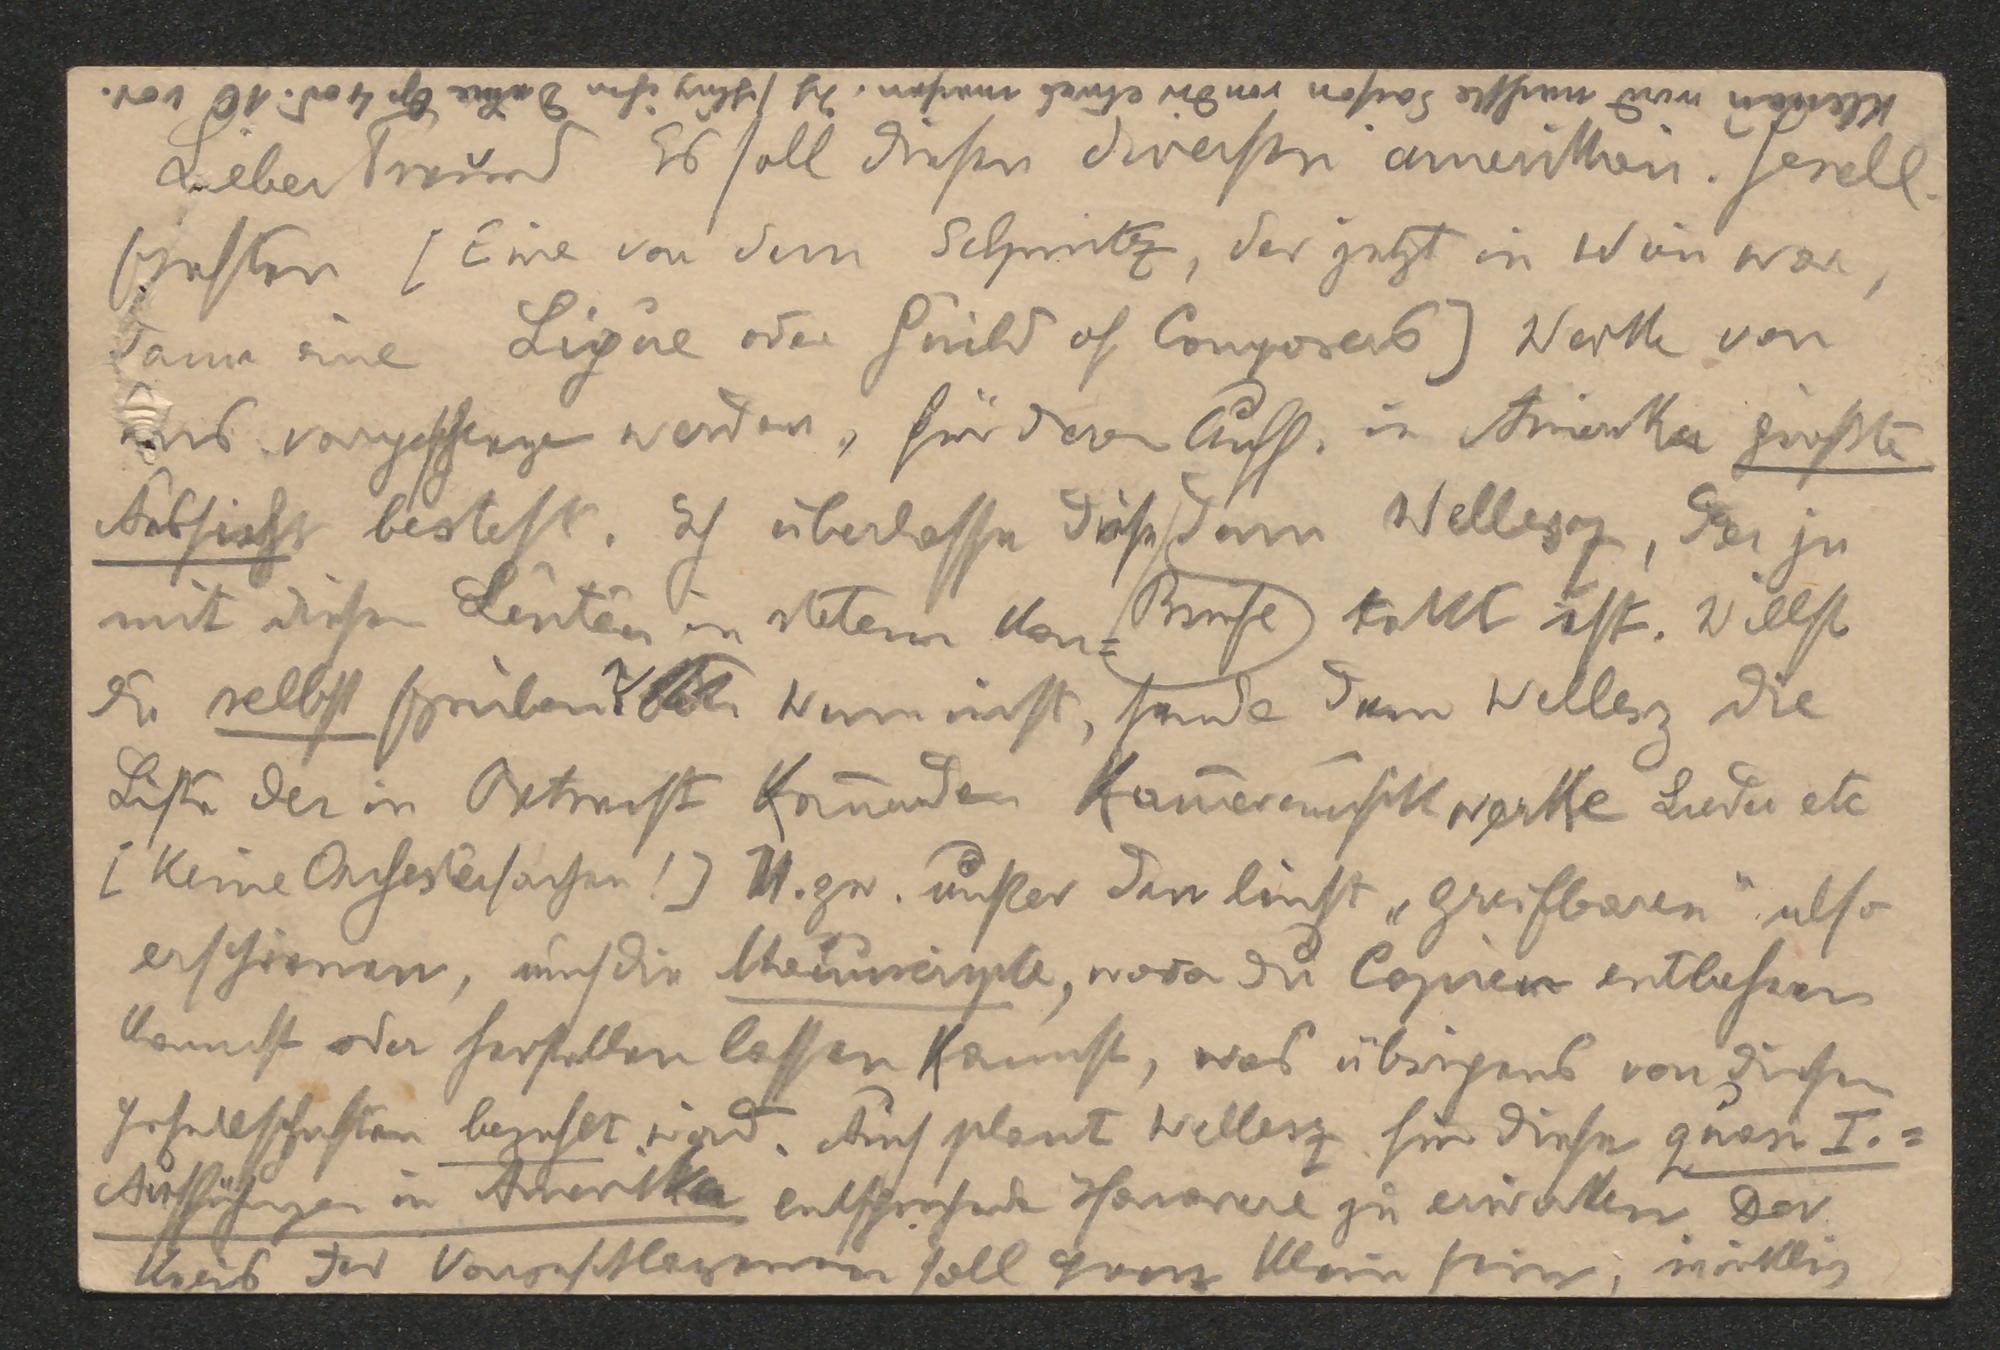 Klenau wird nächste Saison von dir etwas machen. Ich schlug ihm deine Op 4 od. 10 vor.
Lieber Freund Es soll diesen diversen amerikan. Gesell-
schaften [Eine von dem Schmitz, der jetzt in Wien war,
dann eine Ligue oder Guild of Composers] Werke von
uns vorgeschlagen werden, für deren Auff. in Amerika größte
Aussicht besteht. Ich überlasse diese dem Wellesz, der ja
mit diesen Leuten in stetem Kon= Briefe takt ist. Willst
du selbst schreiben? Wenn nicht, sende dem Wellesz die
Liste der in Betracht kom̅enden Kam̅ermusikwerke Lieder etc
[Keine Orchestersachen!] U. zw. außer den leicht „greifbaren" also
erschienenen, auch die Manuscripte, wovon du Copien entbehren
kannst oder herstellen lassen kannst, was übrigens von diesen
Gesellschaften bezahlt wird. Auch plant Wellesz für diese quasi I.=
Aufführungen in Amerika entsprechende Honorare zu erwirken. Der
Kreis der Vorgeschlagenen soll ganz klein sein, wirklich